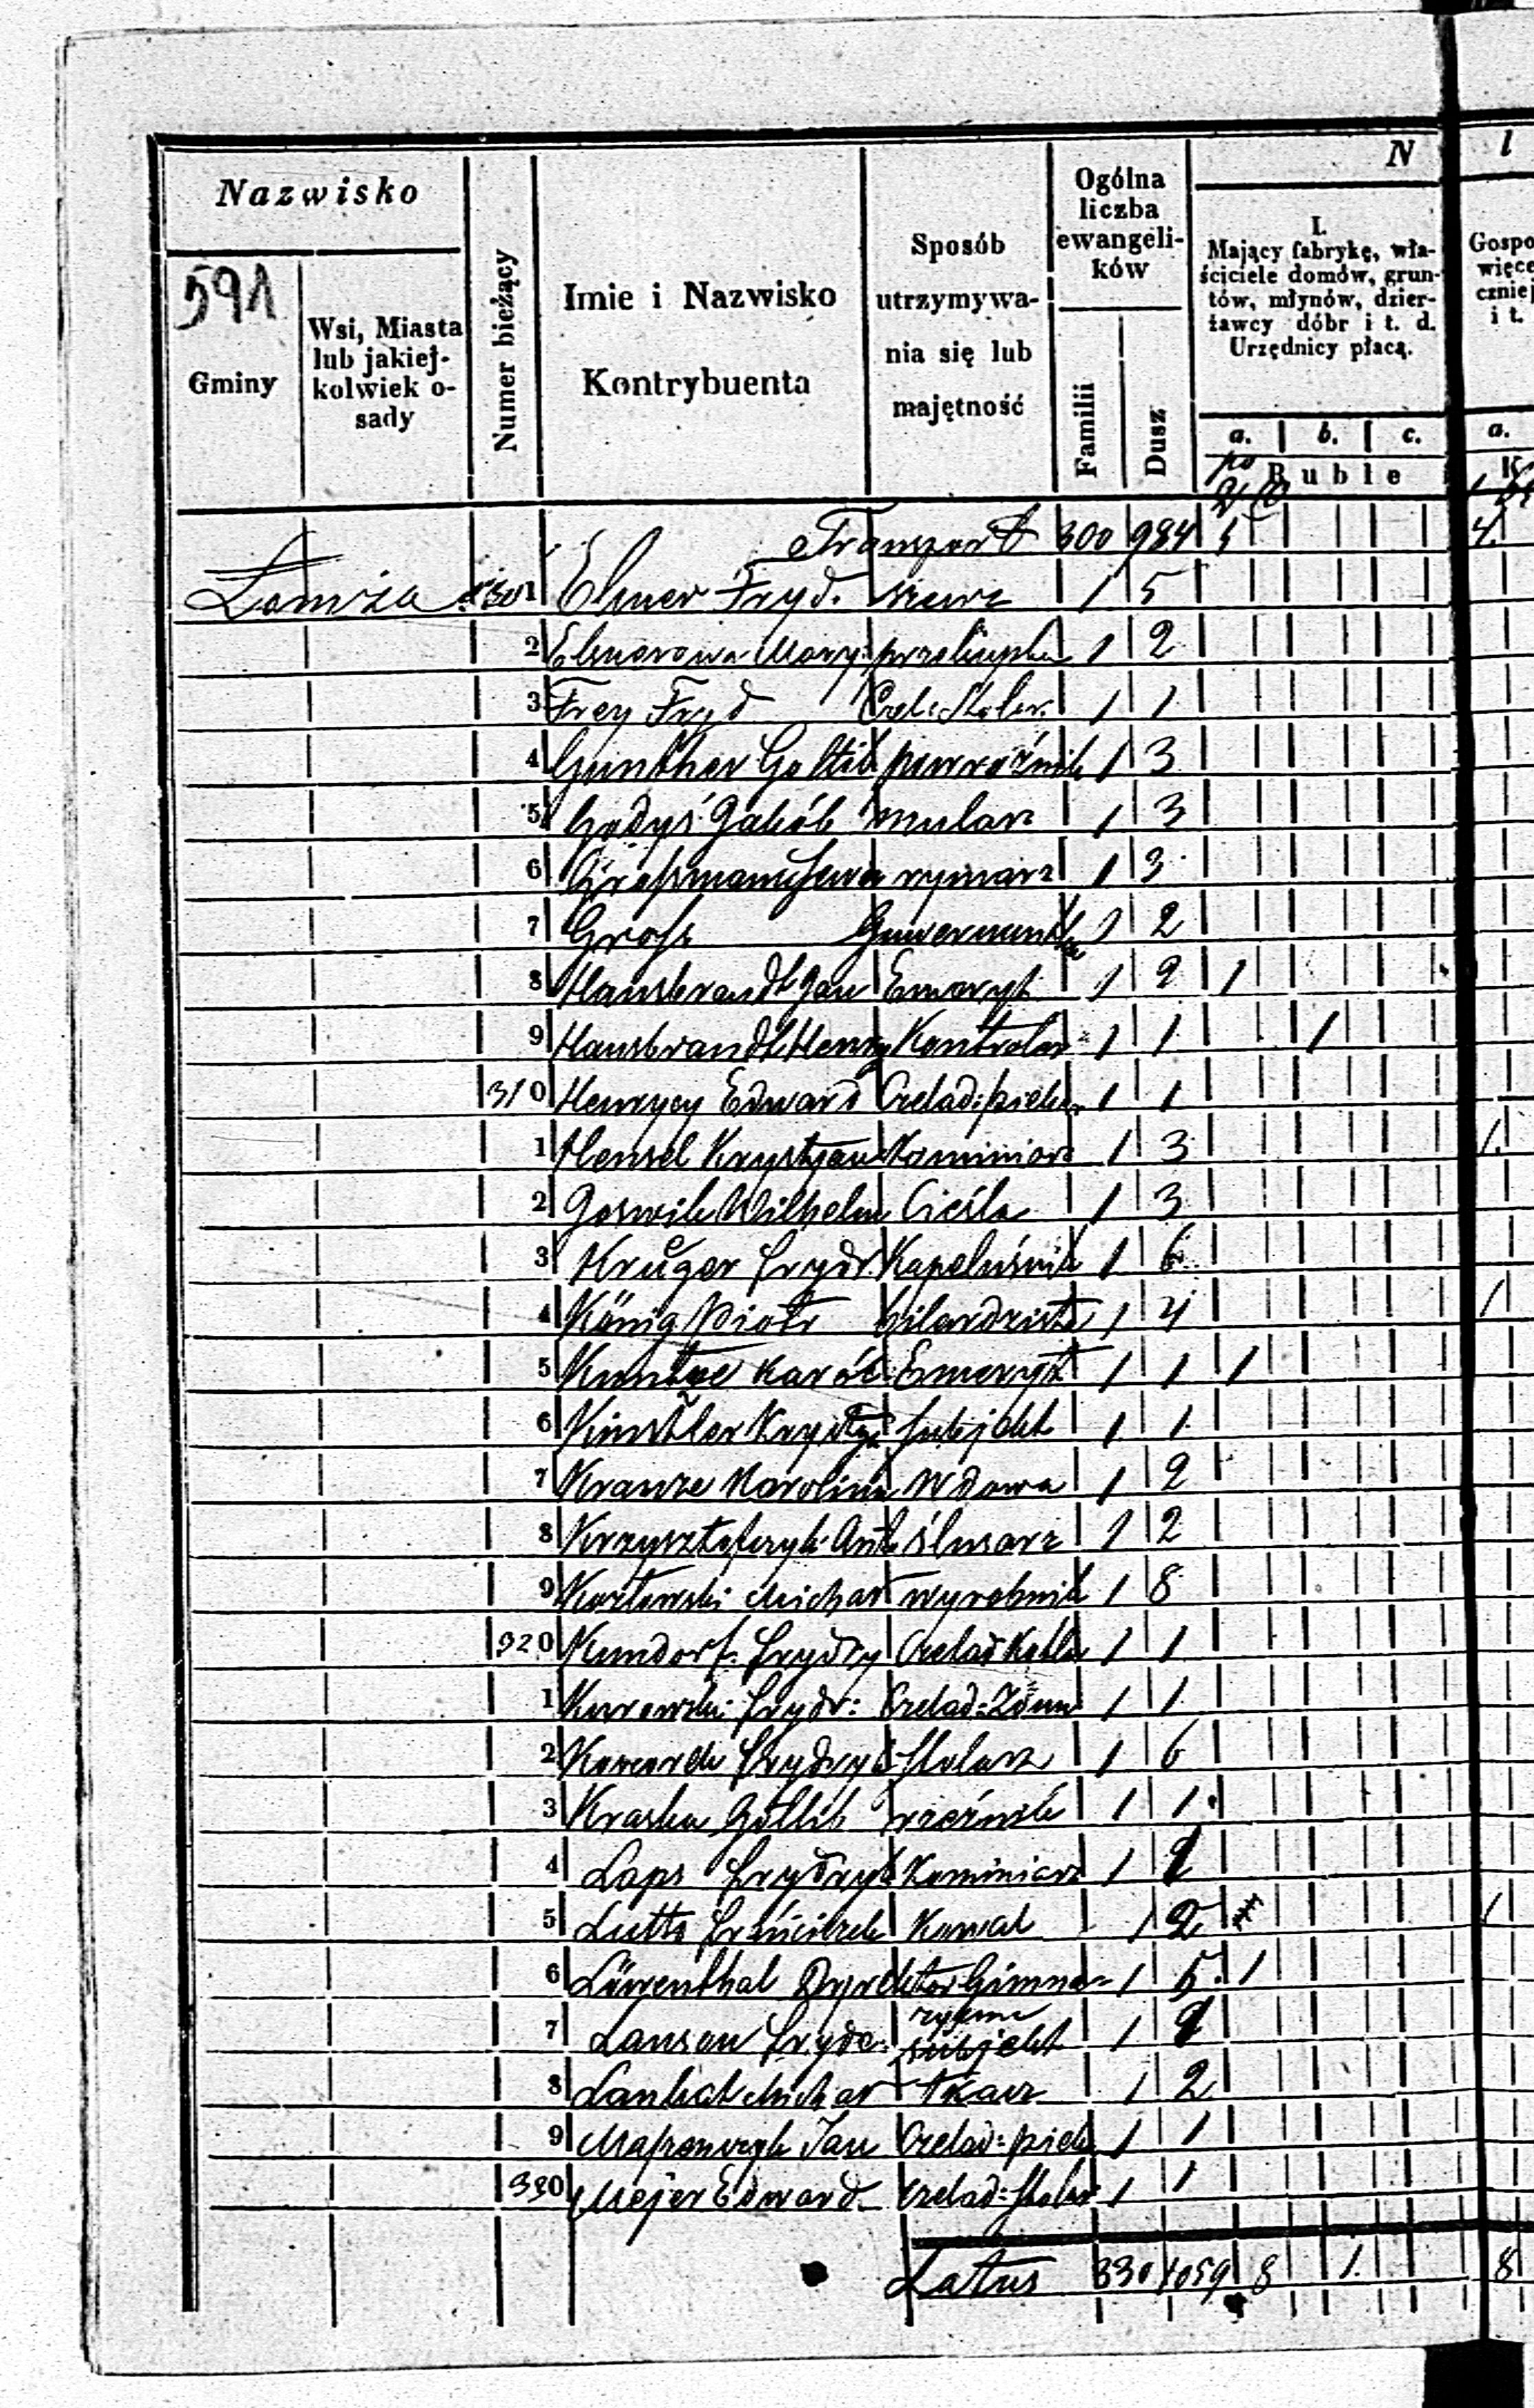 N
l
Nazwisko
591
Gminy
Wsi, Miasta
lub jakiej-
kolwiek o-
sady
Numer bieżący
Imie i Nazwisko
Kontrybuenta
Sposób
utrzymywa-
nia się lub
majętność
Ogólna
liczba
ewangeli-
ków
Familii
Dusz
I.
Mający fabrykę, wła-
ściciele domów, grun-
tów, młynów, dzier-
żawcy dóbr i t. d.
Urzędnicy płacą.
a. b. c.
po Ruble
Gospo
więce
czniej
i t.
a.
Transport 300 984 5 4.
Łomża 301 Elsner Fryd. szewc 1 5
2 Elsnerowa Mary: przekupka 1 2
3 Frey Fryd Czel: Stolar. 1 1
4 Gunther Gottlib powroźnik 1 3
5 Gadyś Jakób mularz 1 3
6 Grossmann rymarz 1 3
7 Gross Guwernantka 1 2
8 Hausbrandt Jan Emeryt 1 2 1
9 Hausbrandt Henry Kontroler 1 1 1
310 Henrycy Edward Czelad: piekar 1 1
1 Hensel Krystjan Kominiarz 1 3 1.
2 Wilhelm Cieśla 1 3
3 Krüger Frydr. Kapeluśnik 1 6
4 König Piotr bilardzista 1 4 1
5 Kuntze Karól Emeryt 1 1 1
6 Künstler Krystja subjekt 1 1
7 Krauze Karolina Wdowa 1 2
8 Krzysztofczyk Ant ślusarz 1 2
9 Kozłowski Michał wyrobnik 1 8
320 Kundorf Frydry Czelad Kotla 1 1
1 Kurowski Frydr: Czelad: Zdun 1 1
2 Frydryk Stolarz 1 6
3 Kraska Gottlib rzeźnik 1 1.
4 Laps Frydryk Kominiarz 1
5 Kowal 1 2 1
6 Löwenthal Dyrektor Gimna- 1 5. 1
zyum
7 Frydr. subjekt 1
8 Michał tkacz 1 2
9 Jan Czelad: piek 1 1
330 Mejer Edward Czelad: Stolar 1 1
Latus 330 1059 8 1. 8